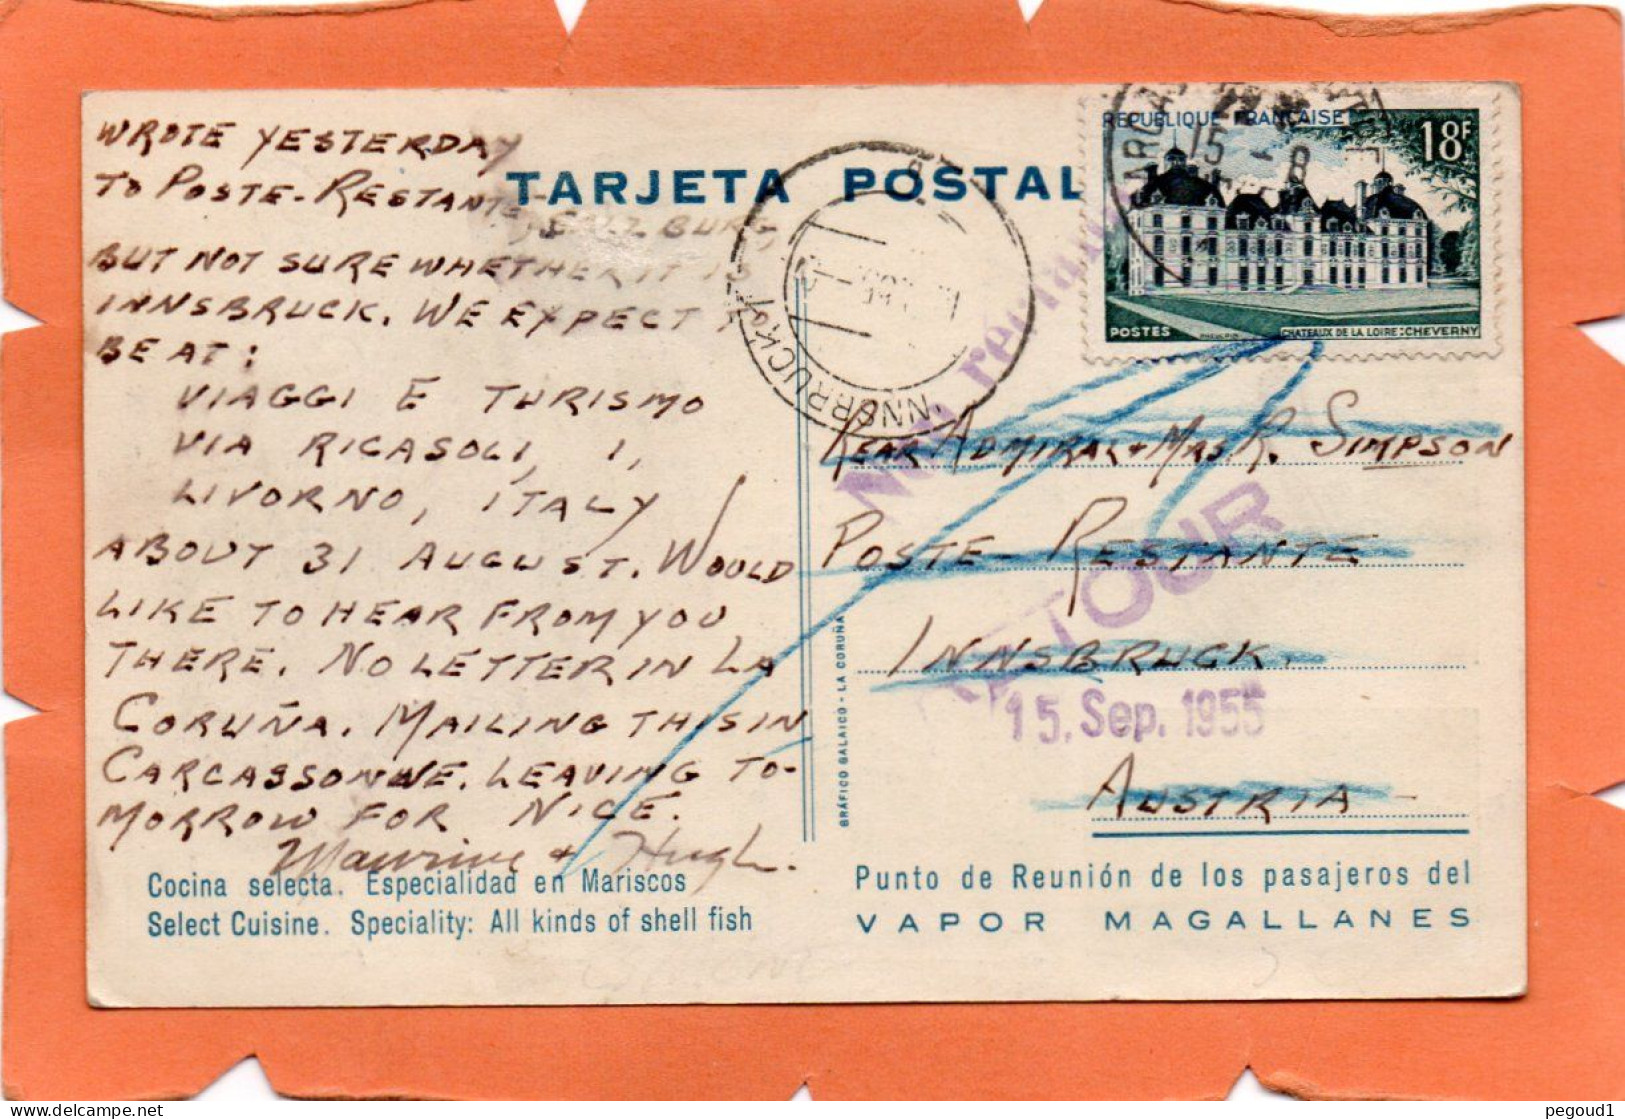 TARJETA POSTAL
WROTE YESTERDAY
TO POSTE-RESTANTE, SALZBURG,
BUT NOT SURE WHETHER IT IS
INNSBRUCK. WE EXPECT
BE AT:
VIAGGI E TURISMO
VIA RICASOLI, 1,
LIVORNO, ITALY
ABOUT 31 AUGUST. WOULD
LIKE TO HEAR FROM YOU
THERE. NO LETTER IN LA
CORUÑA. MAILING THIS IN
CARCASSONNE. LEAVING TO-
MORROW FOR NICE.
Maurine & Hugh.
Cocina selecta. Especialidad en Mariscos
Select Cuisine. Speciality: All kinds of shell fish
GRÁFICO GALAICO - LA CORUÑA
REPUBLIQUE FRANÇAISE
18F
POSTES
CHATEAUX DE LA LOIRE: CHEVERNY
15 - 8
INNSBRUCK
Non réclamé
REAR ADMIRAL & MRS. R. SIMPSON
POSTE-RESTANTE
INNSBRUCK.
AUSTRIA -
RETOUR
15. Sep. 1955
Punto de Reunión de los pasajeros del
VAPOR MAGALLANES
delcampe.net
pegoud1